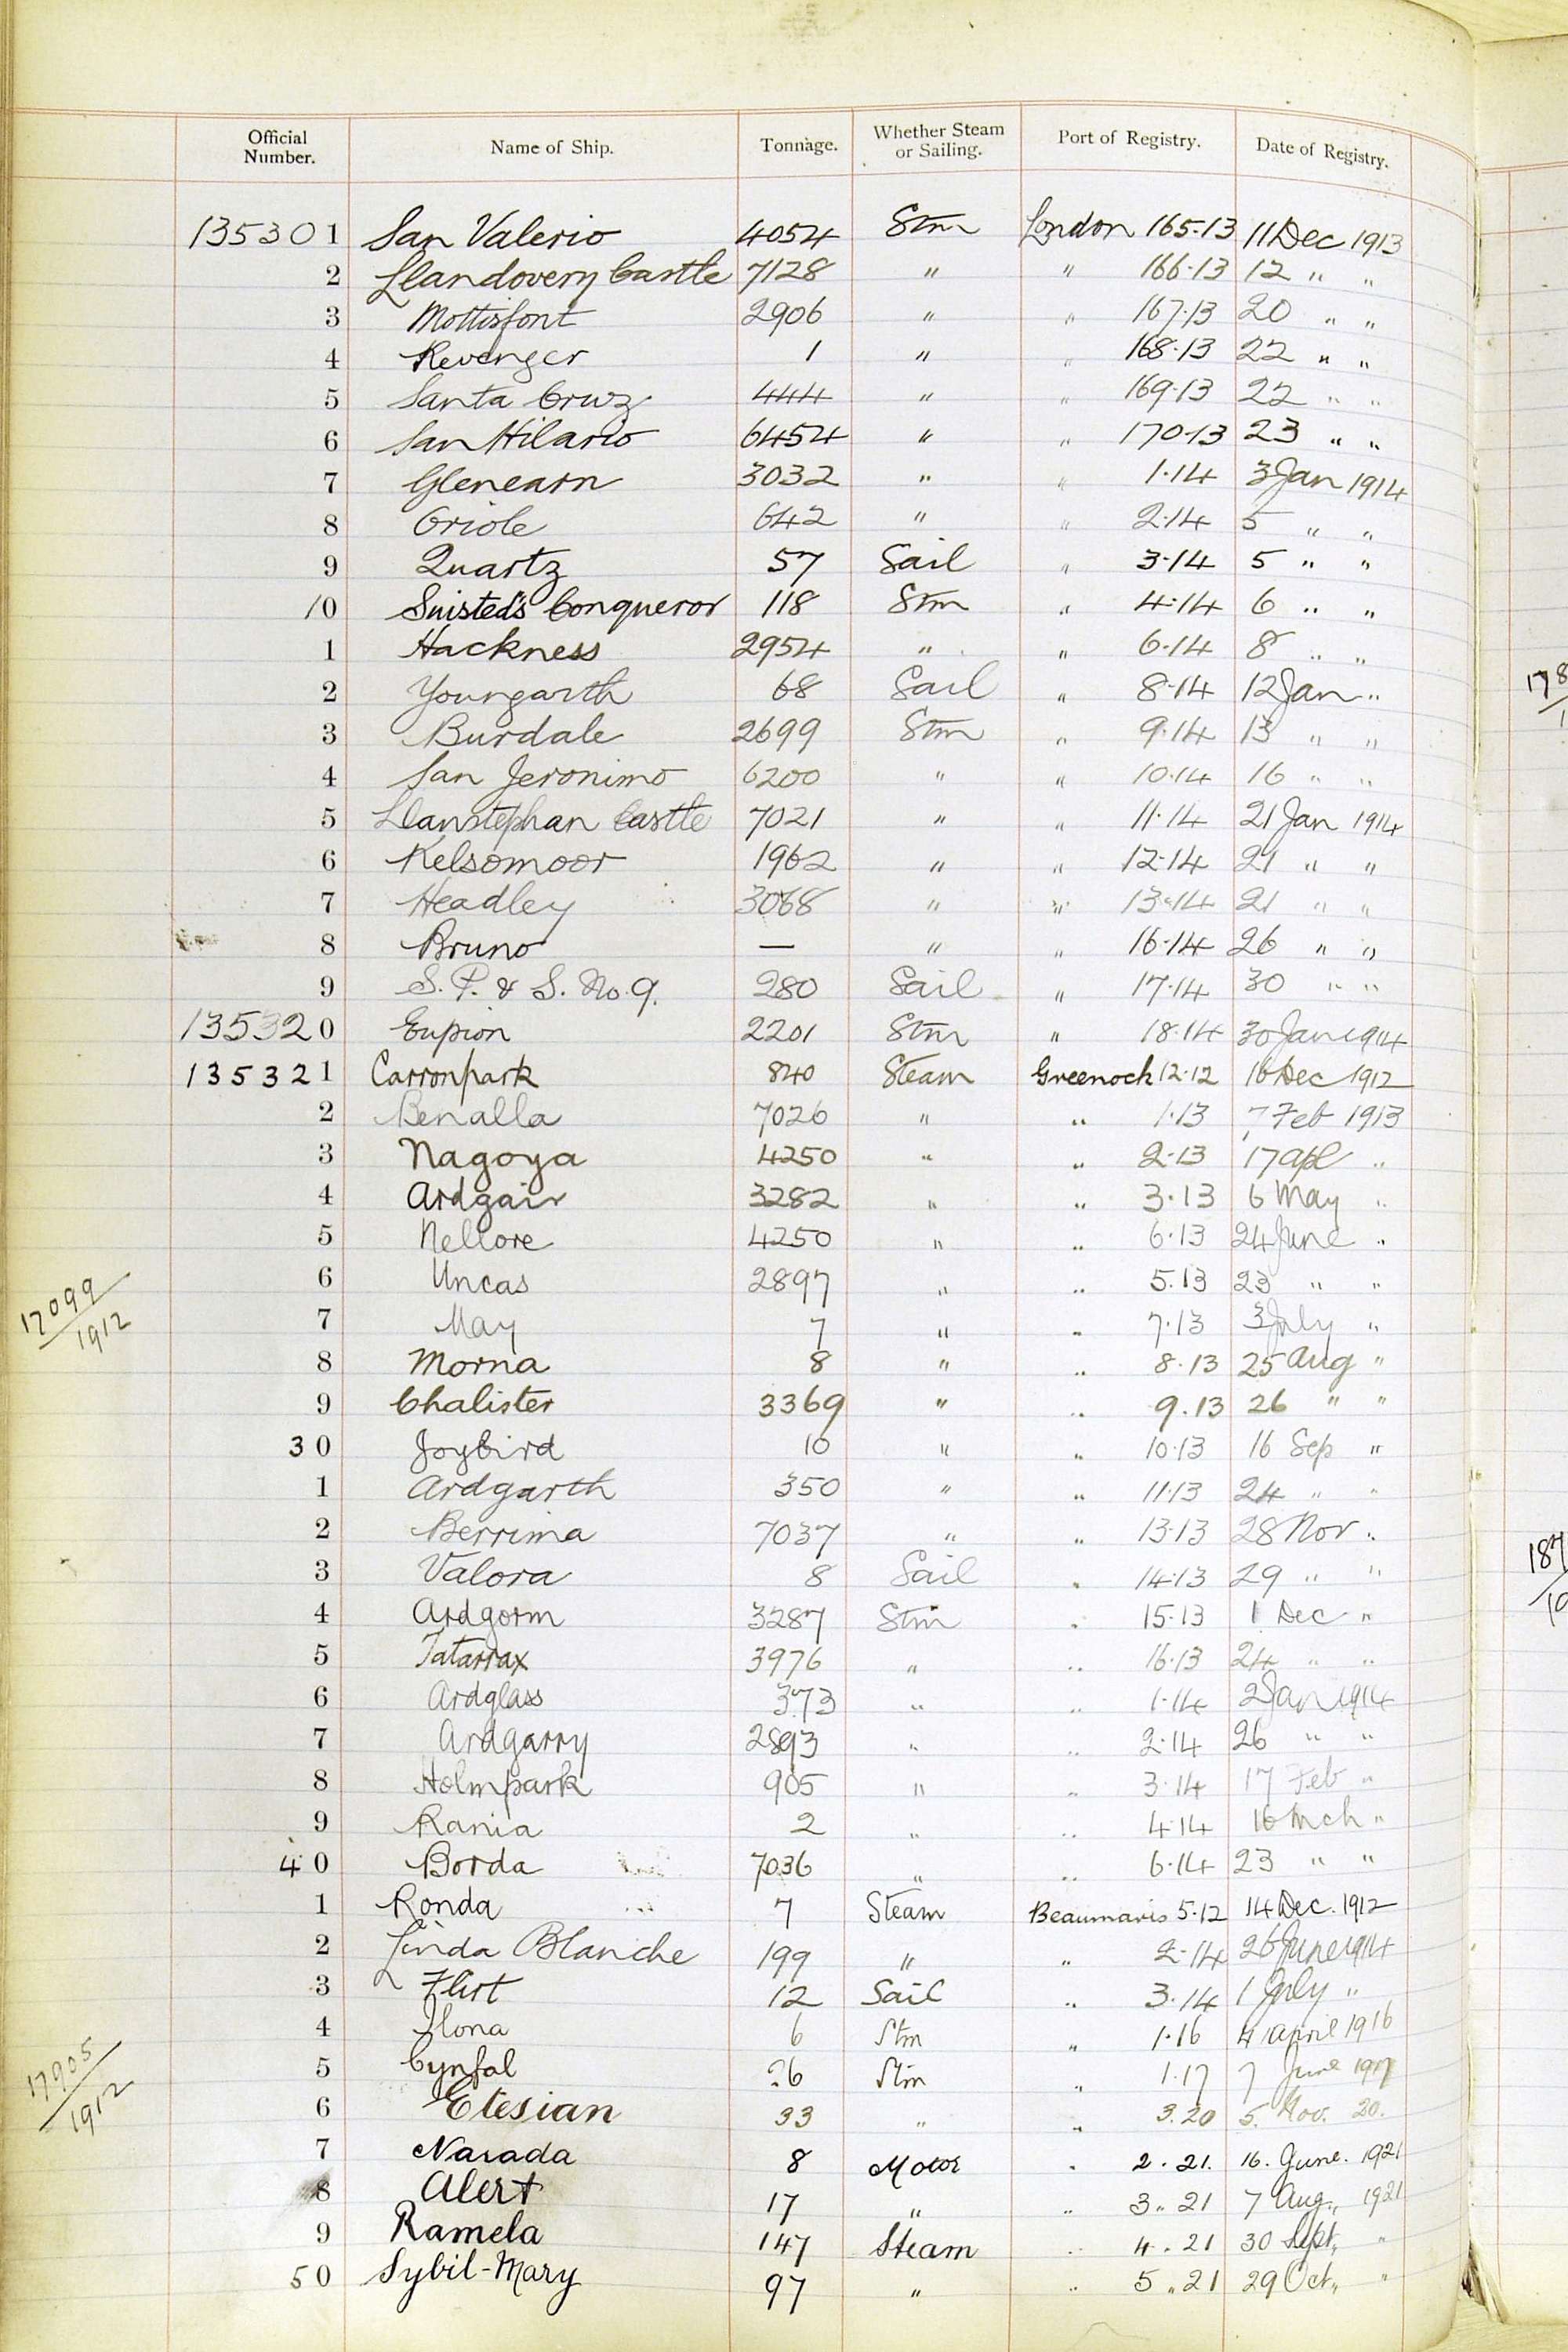 Official Number. Name of Ship. Tonnage. Whether Steam or Sailing. Port of Registry. Date of Registry.
135301 San Valerio 4054 Stm London 165·13 11 Dec 1913
2 Llandovery Castle 7128 " " 166·13 12 " "
3 Mottisfont 2906 " " 167·13 20 " "
4 Revenger 1 " " 168·13 22 " "
5 Santa Cruz 444 " " 169·13 22 " "
6 San Hilario 6454 " " 170·13 23 " "
7 Glenearn 3032 " " 1·14 3 Jan 1914
8 Oriole 642 " " 2·14 5 " "
9 Quartz 57 Sail " 3·14 5 " "
10 Suisted's Conqueror 118 Stm " 4·14 6 " "
1 Hackness 2954 " " 6·14 8 " "
2 Youngarth 68 Sail " 8·14 12 Jan "
3 Burdale 2699 Stm " 9·14 13 " "
4 San Jeronimo 6200 " " 10·14 16 " "
5 Llanstephan Castle 7021 " " 11·14 21 Jan 1914
6 Kelsomoor 1962 " " 12·14 21 " "
7 Headley 3068 " " 13·14 21 " "
8 Bruno — " " 16·14 26 " "
9 S. P. & S. No. 9. 280 Sail " 17·14 30 " "
135320 Eupion 2201 Stm " 18·14 30 Jan 1914
135321 Carronpark 840 Steam Greenock 12·12 16 Dec 1912
2 Benalla 7026 " " 1·13 7 Feb 1913
3 Nagoya 4250 " " 2·13 17 apl "
4 Ardgair 3282 " " 3·13 6 May "
5 Nellore 4250 " " 6·13 24 June "
6 Uncas 2897 " " 5.13 23 " "
17099/1912
7 May 7 " " 7·13 3 July "
8 Morna 8 " " 8·13 25 Aug "
9 Chalister 3369 " " 9.13 26 " "
30 Joybird 10 " " 10·13 16 Sep "
1 Ardgarth 350 " " 11·13 24 " "
2 Berrima 7037 " " 13·13 28 Nov "
3 Valora 8 Sail " 14·13 29 " "
4 Ardgorm 3287 Stm " 15·13 1 Dec "
5 Tatarrax 3976 " " 16·13 24 " "
6 Ardglass 373 " " 1·14 2 Jan 1914
7 Ardgarry 2893 " " 2·14 26 " "
8 Holmpark 905 " " 3·14 17 Feb "
9 Rania 2 " " 4·14 16 Mch "
40 Borda 7036 " " 6·14 23 " "
1 Ronda 7 Steam Beaumaris 5·12 14 Dec. 1912
2 Linda Blanche 199 " " 2·14 26 June 1914
3 Flirt 12 Sail " 3·14 1 July "
4 Ilona 6 Stm " 1·16 4 April 1916
5 Cynfal 26 Stm " 1·17 7 June 1917
17905/1912
6 Etesian 33 " " 3.20 5. Nov. 20.
7 Narada 8 Motor " 2.21. 16. June. 1921
8 Alert 17 " " 3.21 7 Aug., 1921
9 Ramela 147 Steam " 4.21 30 Sept, "
50 Sybil-Mary 97 " " 5.21 29 Oct, "